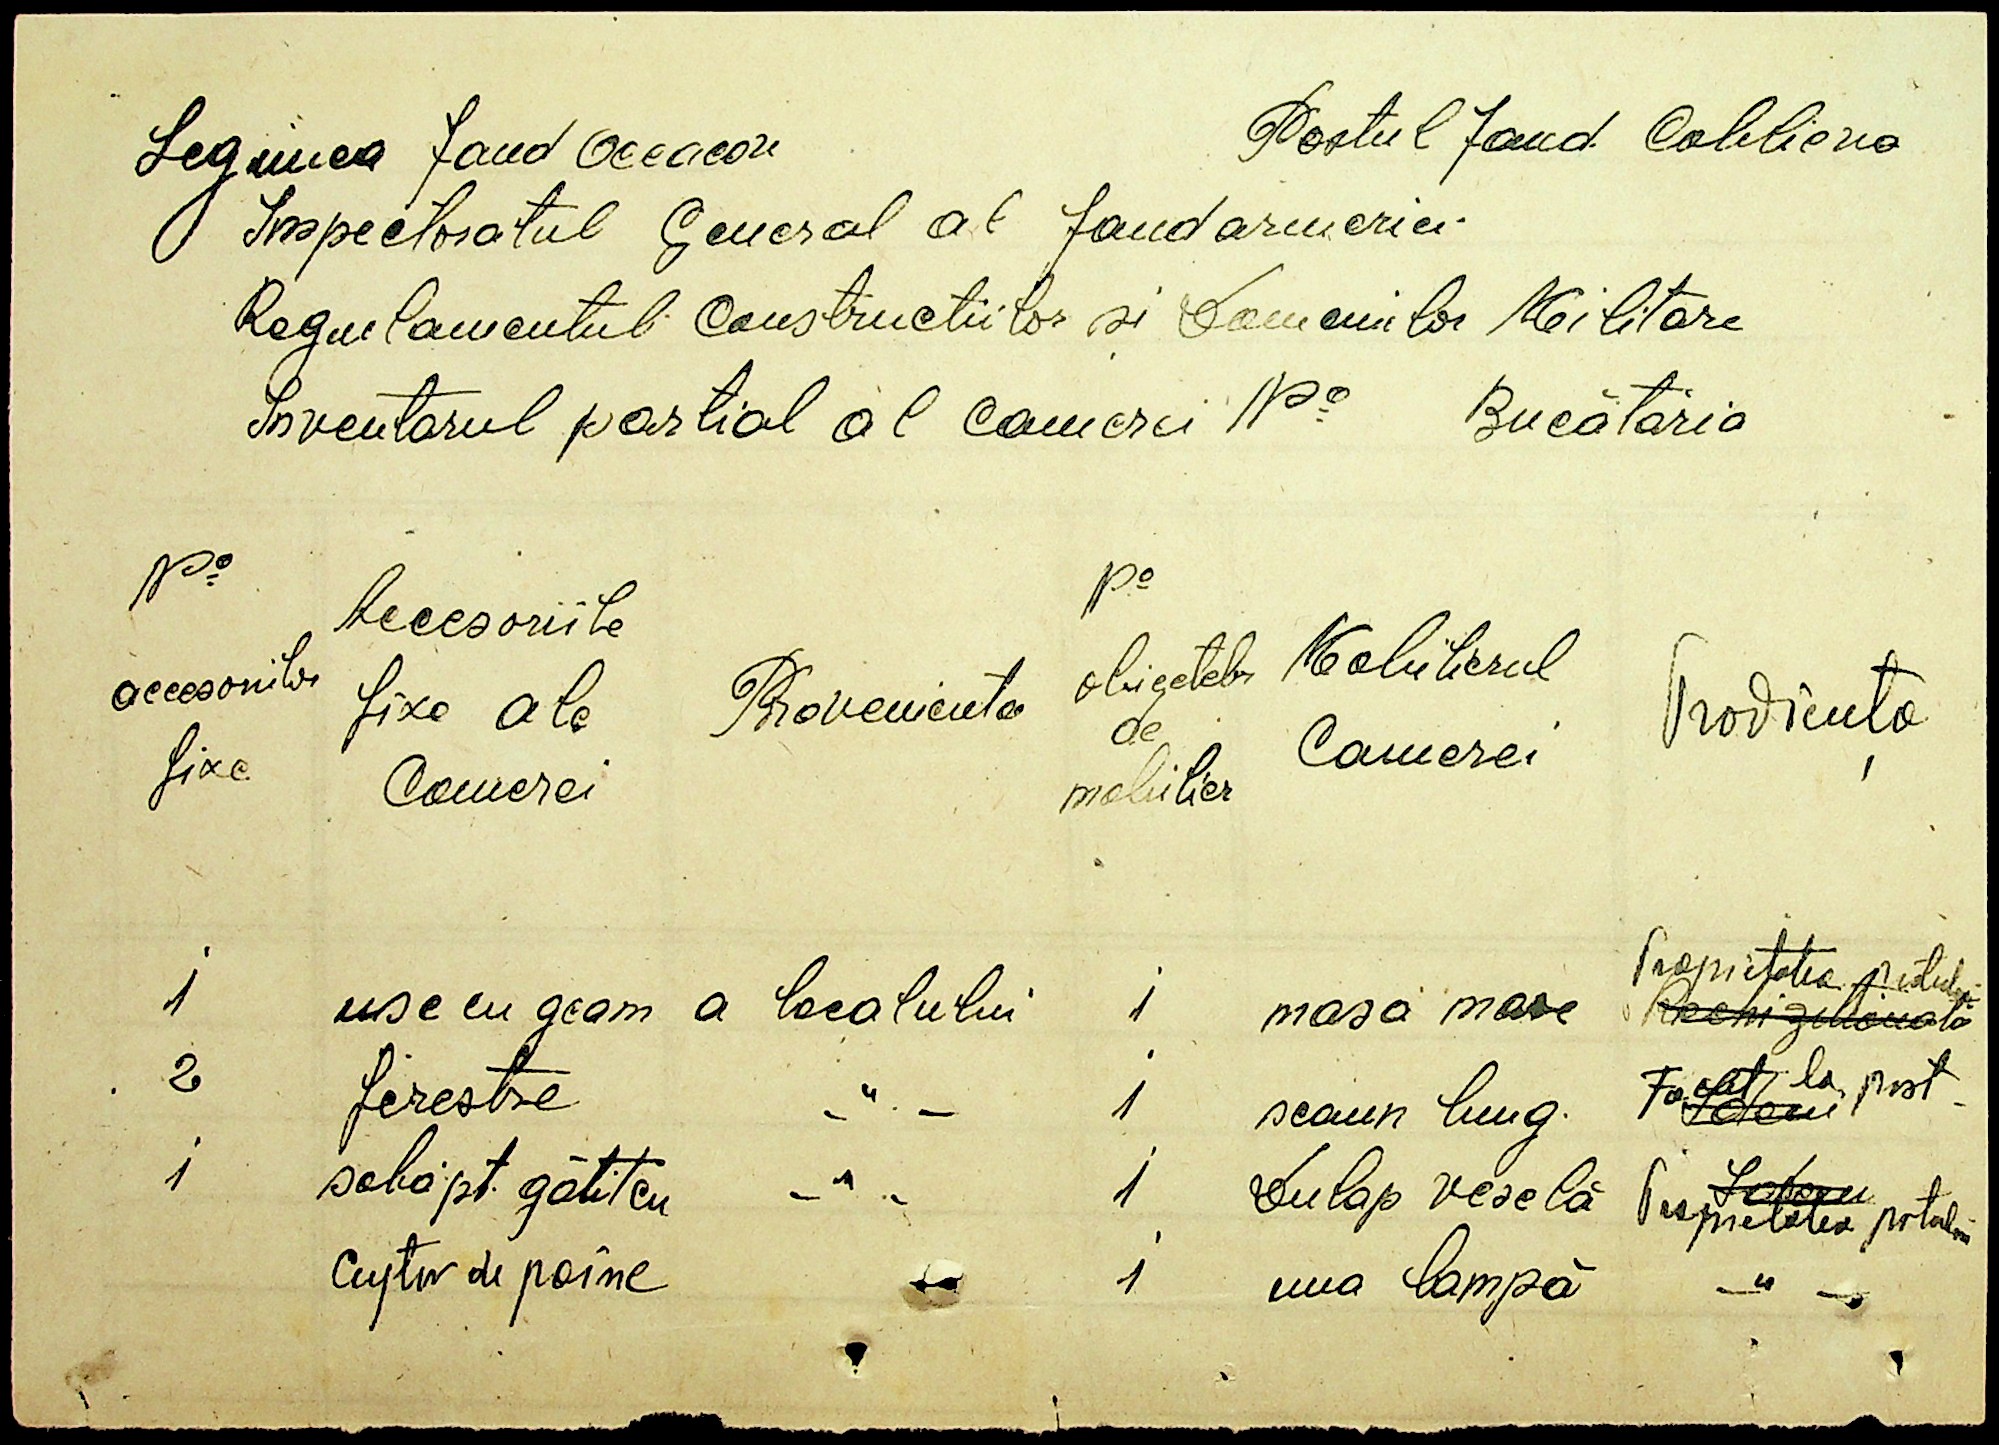 Legiunea Jand Oceacov Postul Jand. Cobliena
Inspectoratul General al Jandarmeriei
Regulamentul Constructiilor si Domeniilor Militare
Inventarul partial al Camerei No Bucătăria
No accesoriilor fixe
Accesoriile fixe ale Camerei
Provenienta
No obiectelor de mobilier
Mobilierul Camerei
Prodiența
1 use cu geam a localului 1 masă mare Proprietatea postului Rechizitionată
2 ferestre -"- 1 scaun lung. Facut la post - Idem
1 sobă pt. gătit cu -"- 1 Dulap veselă Idem Proprietatea postului
Cuptor de pâine 1 una lampă -"-